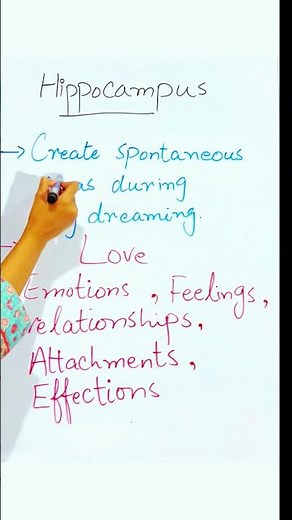 Hippocampus
→ Create spontaneous
as during
dreaming.
→ Love
Emotions, Feelings,
relationships,
Attachments,
Effections